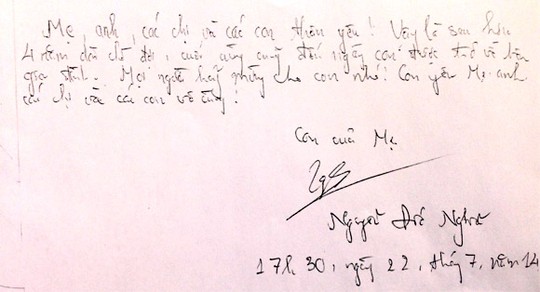 Mẹ, anh, các chị và các con thân yêu! Vậy là sau hơn
4 năm dài chờ đợi, cuối cùng cũng đến ngày con được trở về bên
gia đình. Mọi người hãy mừng cho con nhé! Con yêu Mẹ, anh
các chị và các con vô cùng!
Con của Mẹ
17h 30, ngày 22, tháng 7, năm 14